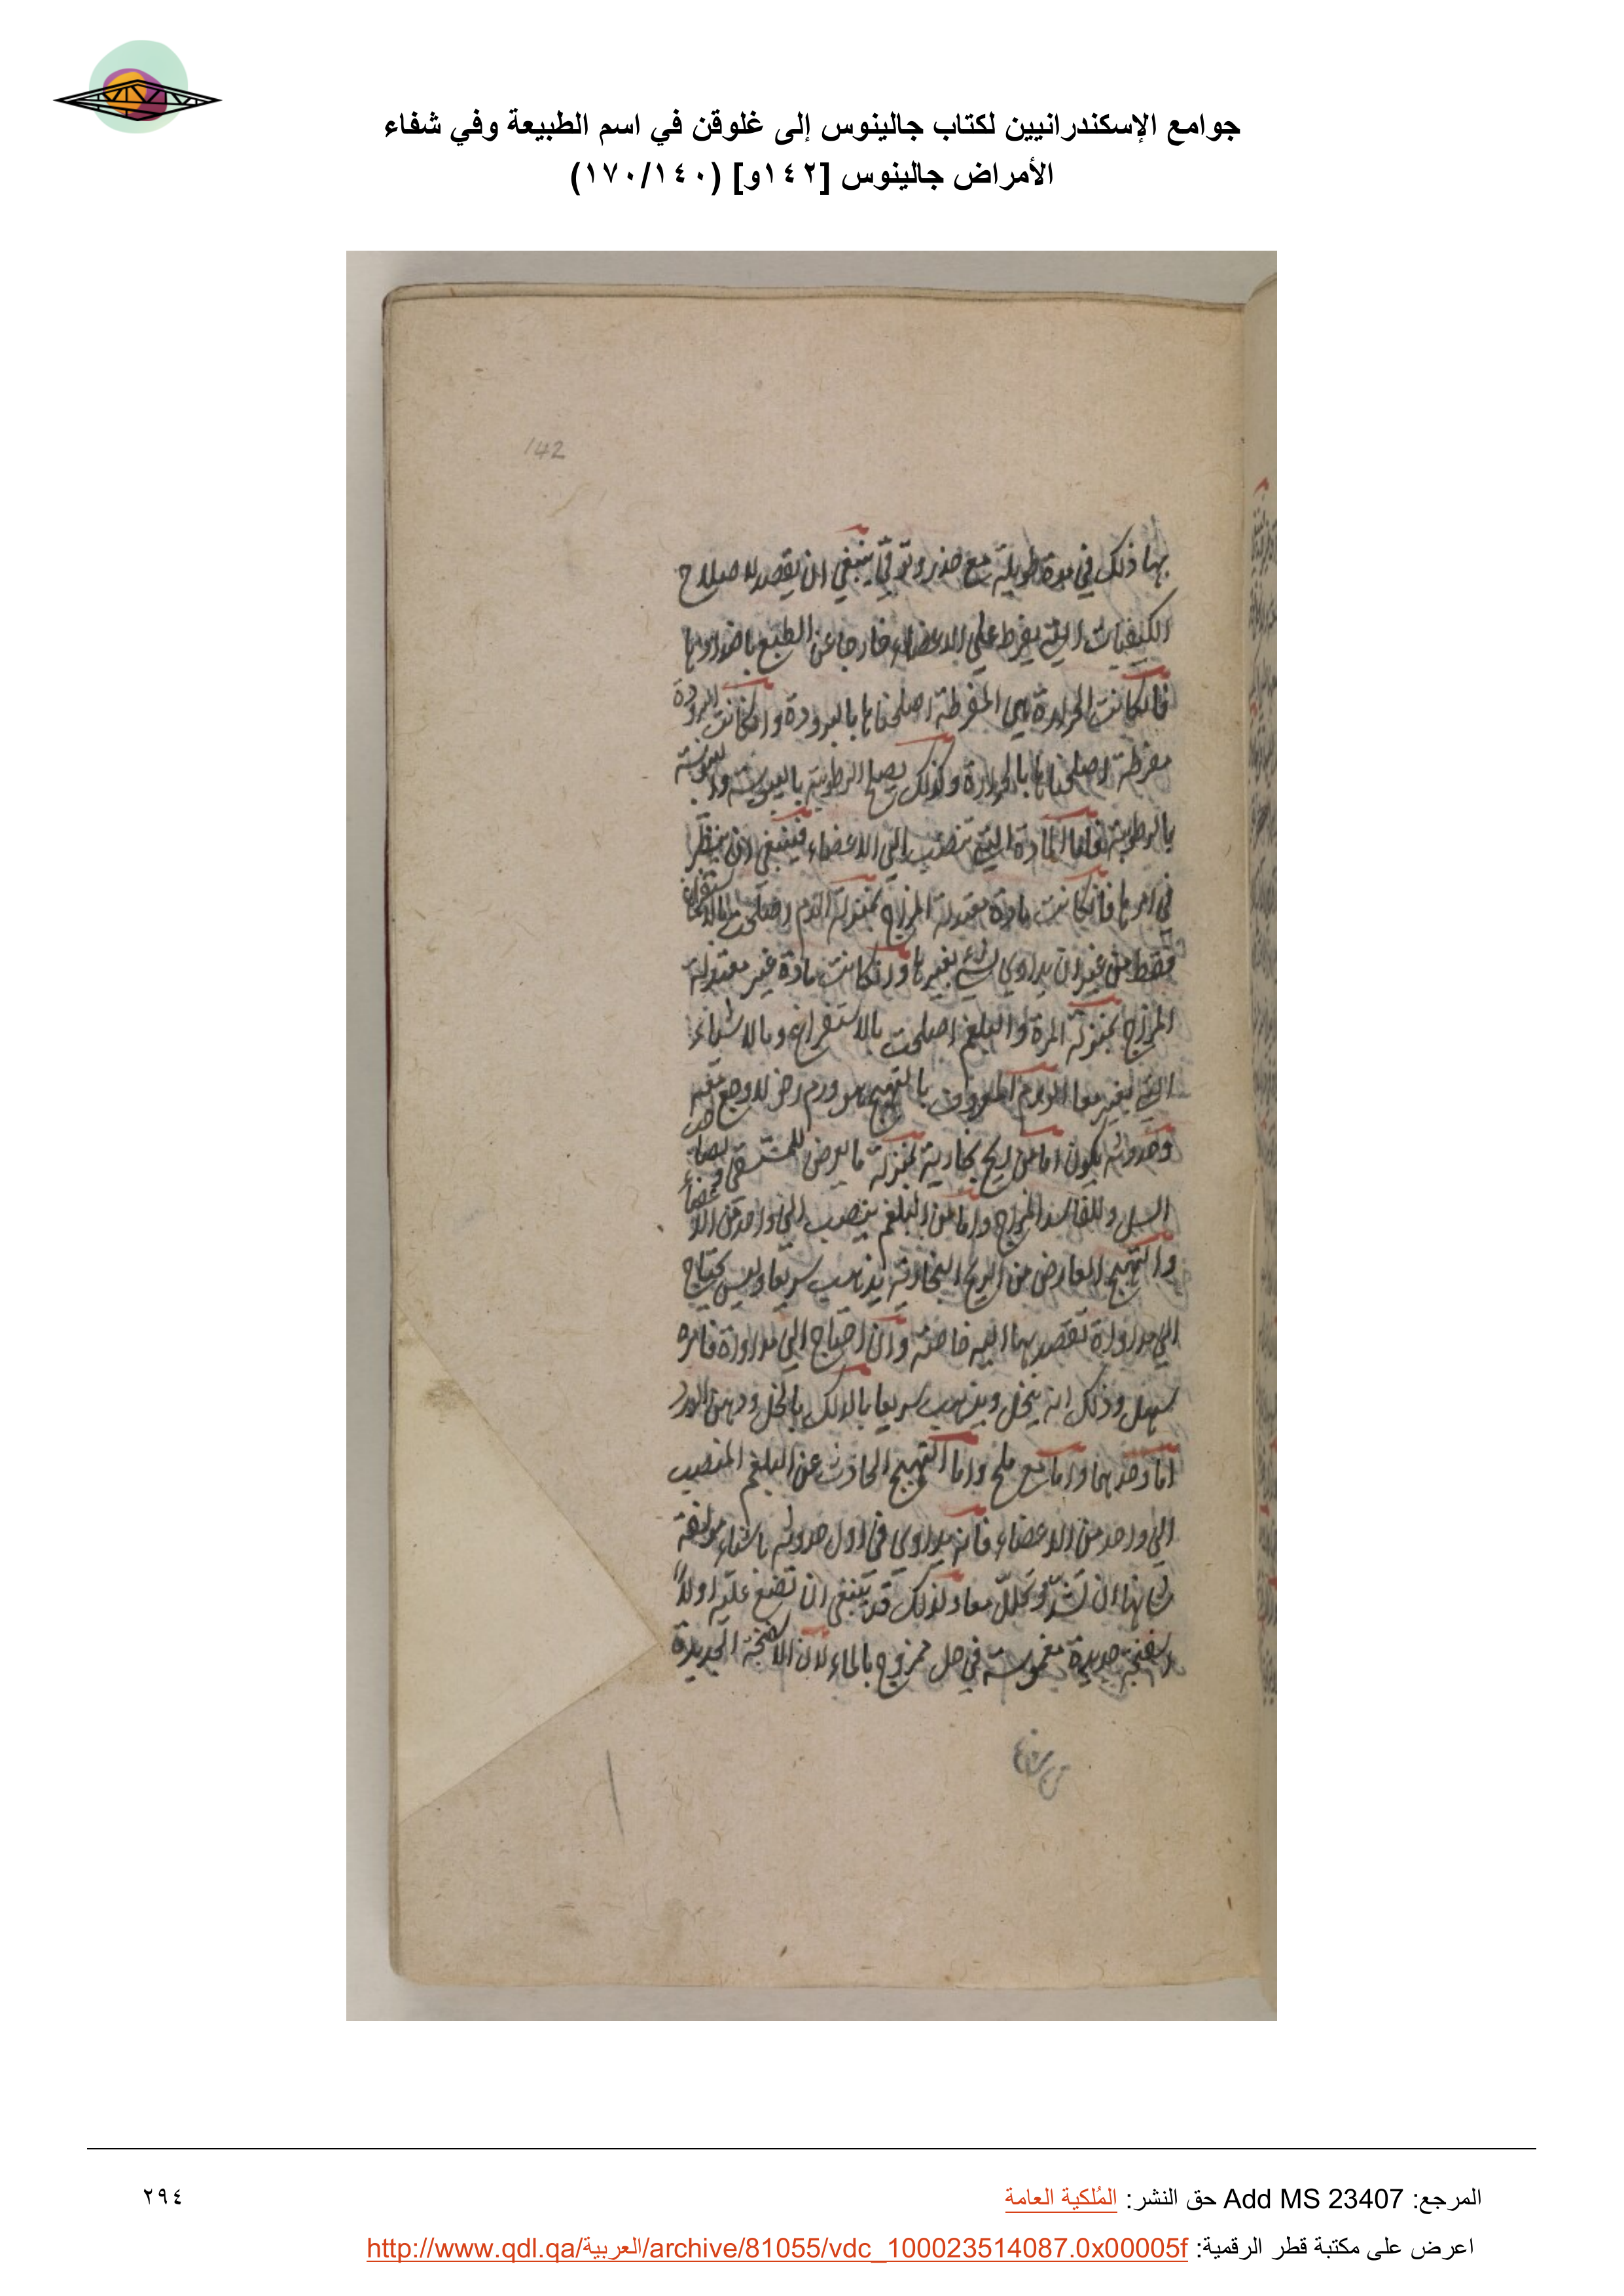 جوامع الإسكندرانيين لكتاب جالينوس إلى غلوقن في اسم الطبيعة وفي شفاء
الأمراض جالينوس [١٤٢و] (١٧٠/١٤٠)
142
بها ذلك في مدة طويلة مع حذر وتوقي ينبغي ان يقصد لاصلاح
الكيفيات التي يفرط على الاعضاء خارجا عن الطبع باضدادها
فان كانت الحرارة هي المفرطة اصلحناها بالبرودة وان كانت البرودة
مفرطة اصلحناها بالحرارة وكذلك يصلح الرطوبة باليبوسة واليبوسة
بالرطوبة فاما المادة التي تنصب الى الاعضاء فينبغي ان ينظر
في امرها فان كانت مادة معتدلة المزاج بمنزلة الدم اصلحت بالاستفراغ
فقط من غير ان يداوى بشيء يغيرها وان كانت مادة غير معتدلة
المزاج بمنزلة المرة والبلغم اصلحت بالاستفراغ وبالاشياء
التي يغير معا الورم المعروف بالتهيج هو ورم رخو لا وجع معه
وحدوثه يكون اما من ريح بخارية بمنزلة ما يعرض للمستسقى ولصاحب
السل وللفاسد المزاج واما من البلغم ينصب الى واحد من الاعضاء
والتهيج العارض من الريح البخارية يذهب سريعا وليس يحتاج
الى مداواة تقصد بها اليه خاصة وان احتاج الى مداواة فامره
سهل وذلك انه ينحل ويذهب سريعا بالدلك بالخل ودهن الورد
اما وحدهما واما مع ملح واما التهيج الحادث عن البلغم المنصب
الى واحد من الاعضاء فانه يداوى في اول حدوثه باشياء مولفة
شانها ان تشد وتحلل معا ولذلك قد ينبغي ان تضع عليه اولا
اسفنجة جديدة مغموسة في خل ممزوج بالماء لان الاسفنجة الجديدة
المرجع: Add MS 23407 حق النشر: المُلكية العامة
٢٩٤
اعرض على مكتبة قطر الرقمية: http://www.qdl.qa/العربية/archive/81055/vdc_100023514087.0x00005f